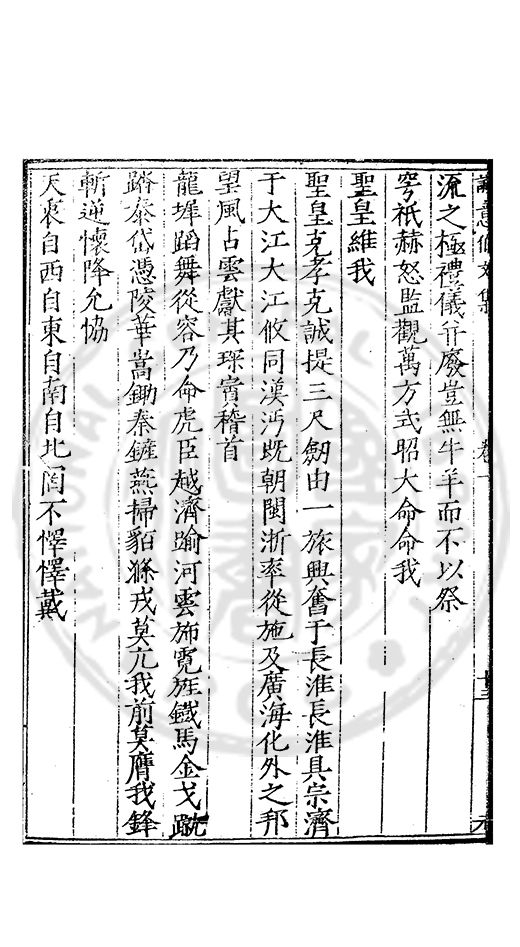 誠意伯文集 卷十
流之極禮儀斧廢豈無牛羊而不以祭
穹祇赫怒監觀萬方式昭大命命我
聖皇維我
聖皇克孝克誠提三尺劒由一旅興奮于長淮長淮具崇濟
于大江大江攸同漢沔既朝閩浙率從施及廣海化外之邦
望風占雲獻其琛賓稽首
龍墀蹈舞從容乃命虎臣越濟踰河雲斾霓旌鐵馬金戈蹴
踏泰岱憑陵華嵩鋤秦鏟燕掃貊滌戎莫亢我前莫膺我鋒
斬逆懷降允恊
天衷自西自東自南自北罔不懌懌戴
NATIONAL